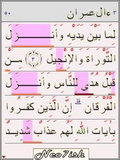 ٣ ءال عمران ٥٠
لما بين يديه وأنـــزل
التوراة والإنجيل (٣) مـن
قبل هدى للناس وأنـــزل
الفرقان إن الذين كفروا
بآيات الله لهم عذاب شديـد
Neo7ish